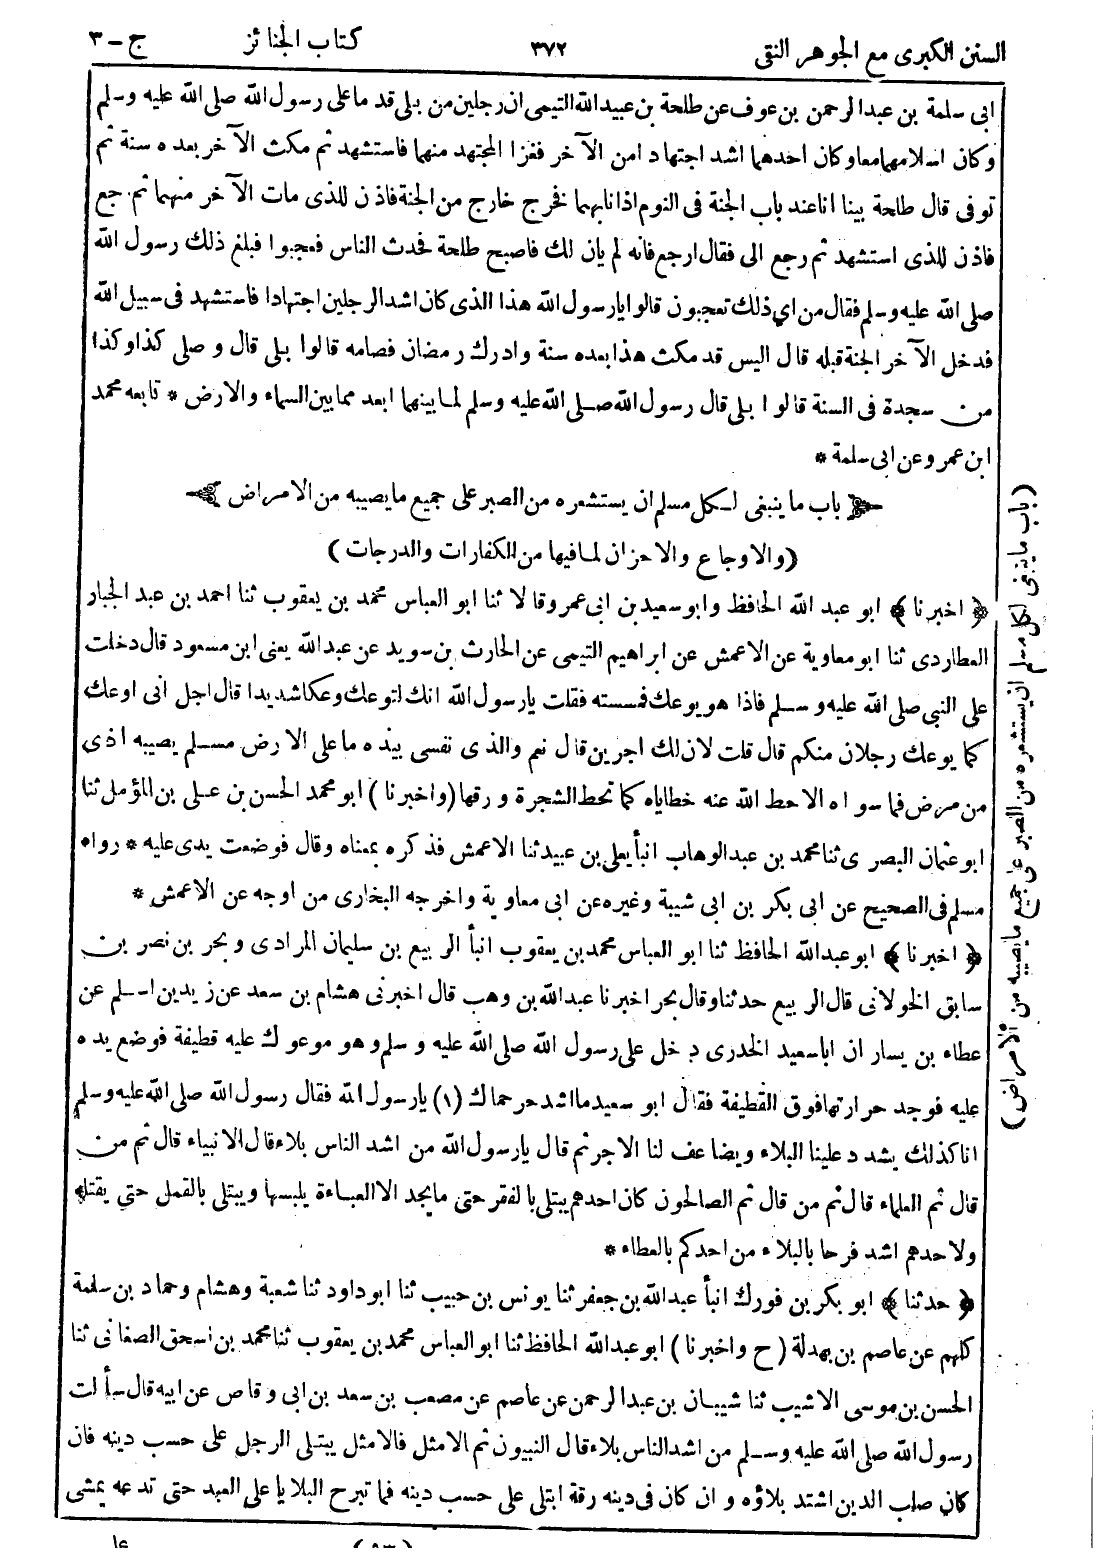 السنن الكبرى مع الجوهر النقى ٣٧٢ كتاب الجنائز ج-٣
ابى سلمة بن عبدالرحمن بن عوف عن طلحة بن عبيدالله التيمى ان رجلين من بلى قدما على رسول الله صلى الله عليه وسلم
وكان اسلامهما معا وكان احدهما اشد اجتهادا من الآخر فغزا المجتهد منهما فاستشهد ثم مكث الآخر بعده سنة ثم
توفى قال طلحة بينا انا عند باب الجنة فى النوم اذا نا بهما فخرج خارج من الجنة فاذن للذى مات الآخر منهما ثم رجع
فاذن للذى استشهد ثم رجع الى فقال ارجع فانه لم يان لك فاصبح طلحة فحدث الناس فعجبوا فبلغ ذلك رسول الله
صلى الله عليه وسلم فقال من اي ذلك تعجبون قالوا يا رسول الله هذا الذى كان اشد الرجلين اجتهادا فاستشهد فى سبيل الله
فدخل الآخر الجنة قبله قال اليس قد مكث هذا بعده سنة وادرك رمضان فصامه قالوا بلى قال وصلى كذا وكذا
من سجدة فى السنة قالوا بلى قال رسول الله صلى الله عليه وسلم لما بينهما ابعد مما بين السماء والارض * تابعه محمد
ابن عمرو عن ابى سلمة *
باب ما ينبغى لكل مسلم ان يستشعره من الصبر على جميع ما يصيبه من الامراض
(والاوجاع والاحزان لما فيها من الكفارات والدرجات)
﴿ اخبرنا ﴾ ابو عبد الله الحافظ وابو سعيد بن ابى عمرو قالا ثنا ابو العباس محمد بن يعقوب ثنا احمد بن عبد الجبار
العطاردى ثنا ابو معاوية عن الاعمش عن ابراهيم التيمى عن الحارث بن سويد عن عبدالله يعنى ابن مسعود قال دخلت
على النبى صلى الله عليه وسلم فاذا هو يوعك فمسسته فقلت يا رسول الله انك لتوعك وعكا شديدا قال اجل انى اوعك
كما يوعك رجلان منكم قال قلت لان لك اجرين قال نعم والذى نفسى بيده ما على الارض مسلم يصيبه اذى
من مرض فما سواه الا حط الله عنه خطاياه كما تحط الشجرة ورقها (واخبرنا) ابو محمد الحسن بن على بن المؤمل ثنا
ابو عثمان البصرى ثنا محمد بن عبدالوهاب انبأ يعلى بن عبيد ثنا الاعمش فذكره بمعناه وقال فوضعت يدى عليه * رواه
مسلم فى الصحيح عن ابى بكر بن ابى شيبة وغيره عن ابى معاوية واخرجه البخارى من اوجه عن الاعمش *
﴿ اخبرنا ﴾ ابو عبدالله الحافظ ثنا ابو العباس محمد بن يعقوب انبأ الربيع بن سليمان المرادى وبحر بن نصر بن
سابق الخولانى قال الربيع حدثنا وقال بحر اخبرنا عبدالله بن وهب قال اخبرنى هشام بن سعد عن زيد بن اسلم عن
عطاء بن يسار ان ابا سعيد الخدرى دخل على رسول الله صلى الله عليه وسلم وهو موعوك عليه قطيفة فوضع يده
عليه فوجد حرارتها فوق القطيفة فقال ابو سعيد ما اشد حر حماك (١) يا رسول الله فقال رسول الله صلى الله عليه وسلم
انا كذلك يشدد علينا البلاء ويضاعف لنا الاجر ثم قال يا رسول الله من اشد الناس بلاء قال الانبياء قال ثم من
قال ثم العلماء قال ثم من قال ثم الصالحون كان احدهم يبتلى بالفقر حتى ما يجد الا العباءة يلبسها ويبتلى بالقمل حتى يقتله
ولاحدهم اشد فرحا بالبلاء من احدكم بالعطاء *
﴿ حدثنا ﴾ ابو بكر بن فورك انبأ عبدالله بن جعفر ثنا يونس بن حبيب ثنا ابو داود ثنا شعبة وهشام وحماد بن سلمة
كلهم عن عاصم بن بهدلة (ح واخبرنا) ابو عبدالله الحافظ ثنا ابو العباس محمد بن يعقوب ثنا محمد بن اسحق الصغانى ثنا
الحسن بن موسى الاشيب ثنا شيبان بن عبدالرحمن عن عاصم عن مصعب بن سعد بن ابى وقاص عن ابيه قال سألت
رسول الله صلى الله عليه وسلم من اشد الناس بلاء قال النبيون ثم الامثل فالامثل يبتلى الرجل على حسب دينه فان
كان صلب الدين اشتد بلاؤه وان كان فى دينه رقة ابتلى على حسب دينه فما تبرح البلايا على العبد حتى تدعه يمشى
(باب ما ينبغى لكل مسلم ان يستشعره من الصبر على جميع ما يصيبه من الامراض)